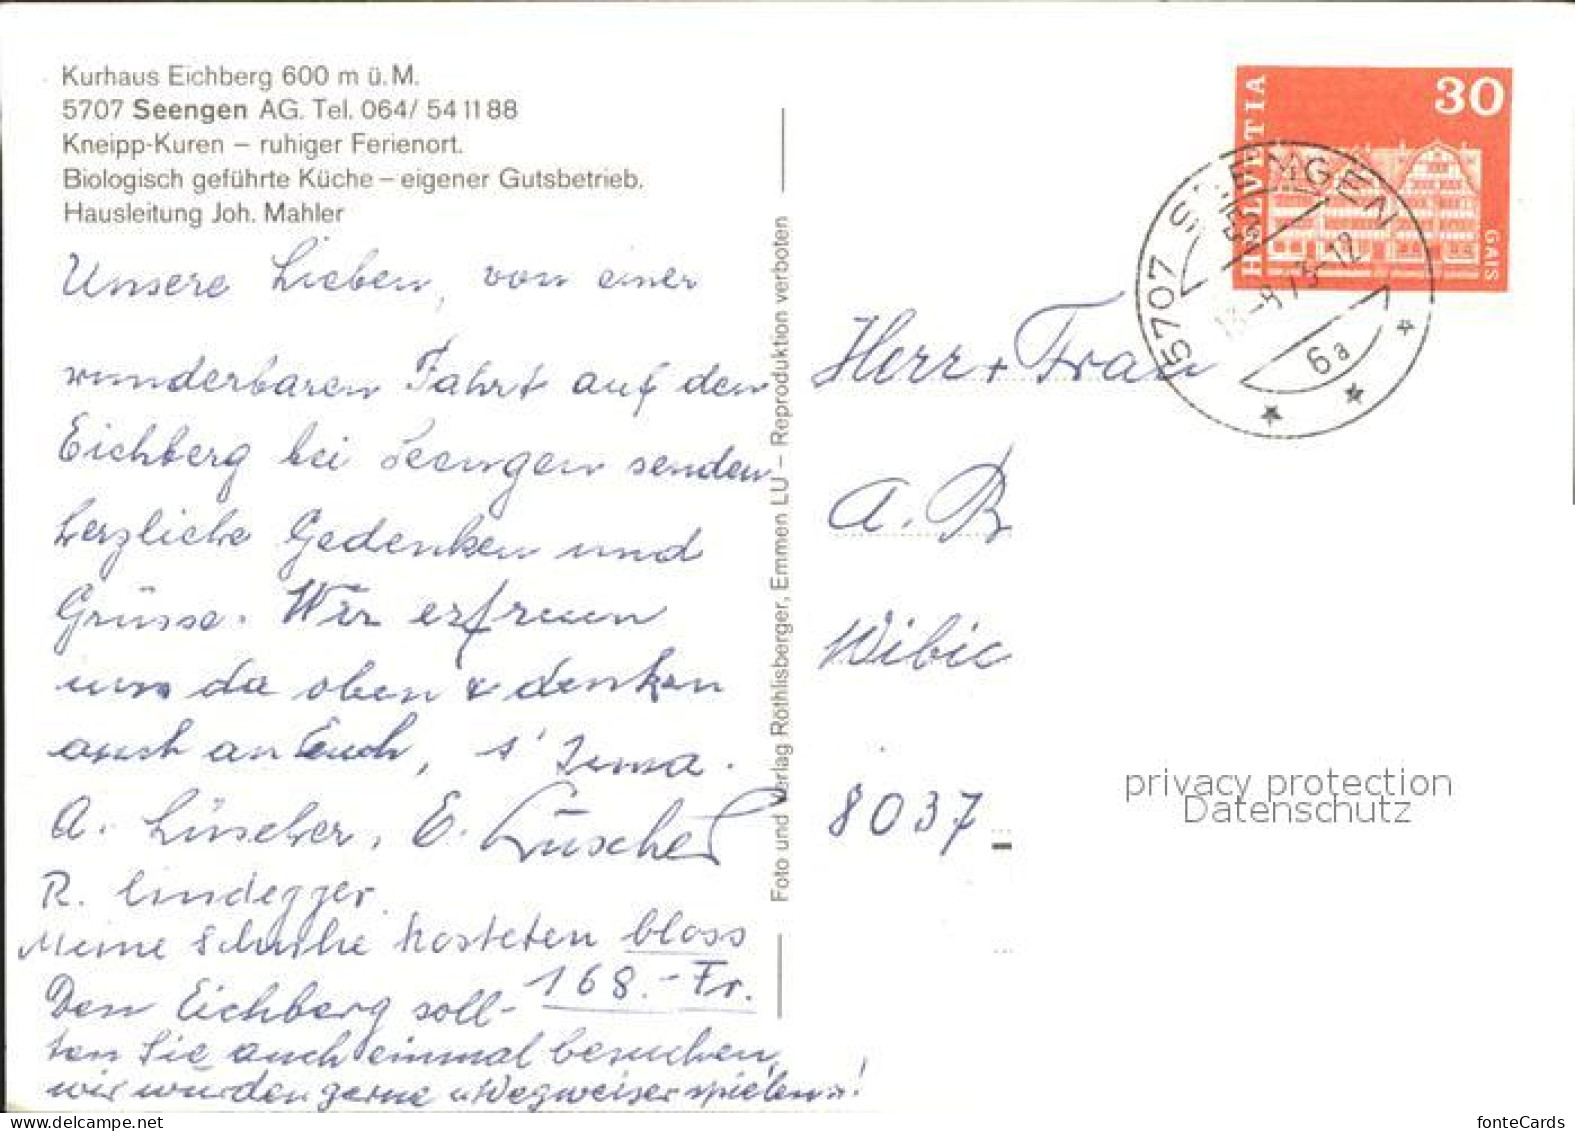 Kurhaus Eichberg 600 m ü. M.
5707 Seengen AG. Tel. 064/ 54 11 88
Kneipp-Kuren – ruhiger Ferienort.
Biologisch geführte Küche – eigener Gutsbetrieb.
Hausleitung Joh. Mahler
Unsere Lieben, von einer
wunderbaren Fahrt auf den
Eichberg bei Seengen senden
herzliche Gedenken und
Grüsse. Wir erfreuen
uns da oben & denken
auch an Euch,
A. Lüscher, E. Lüscher
R. Lindegger
Meine Schuhe kosteten bloss
168.- Fr.
Den Eichberg soll-
ten Sie auch einmal besuchen,
wir würden gerne «Wegweiser spielen»!
Foto und Verlag Röthlisberger, Emmen LU – Reproduktion verboten
HELVETIA
30
GAIS
5707 SEENGEN
6a
Herr + Frau
A. B
Wibic
8037
privacy protection
Datenschutz
fonteCards